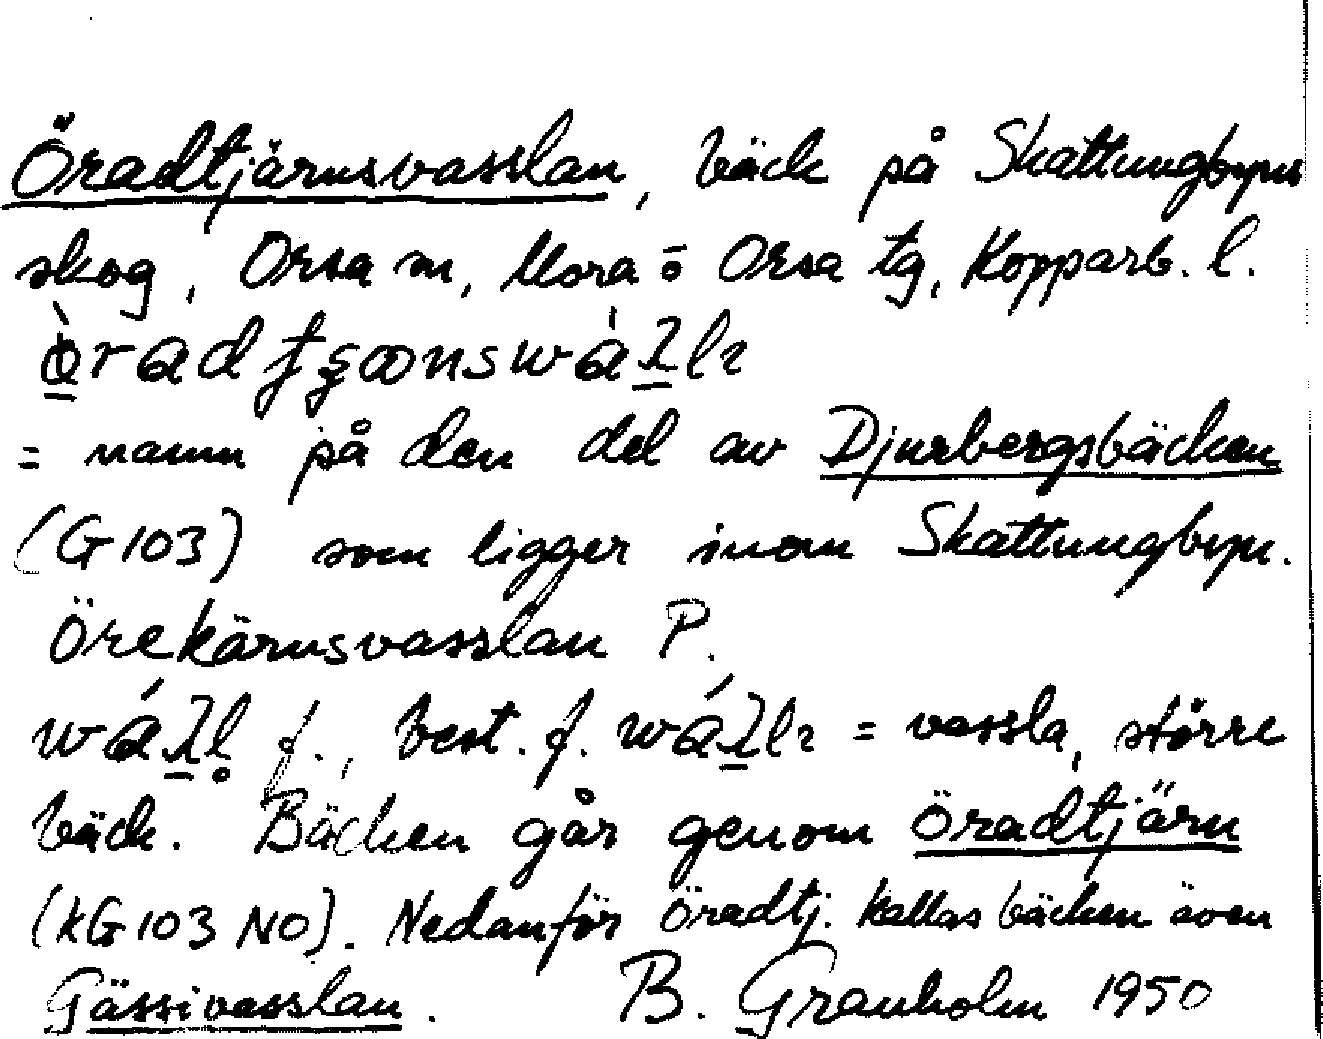 Öradtjärnsvasslan, bäck på Skattungbyns
skog, Orsa sn, Mora o Orsa tg, Kopparb. l.
= namn på den del av Djurbergsbäcken
(G 103) som ligger inom Skattungbyn.
Örekärnsvasslan P.
f., best. f. = vassla, större
bäck. Bäcken går genom Öradtjärn
(kG 103 NO). Nedanför Öradtj. kallas bäcken även
Gässivasslan. B. Granholm 1950